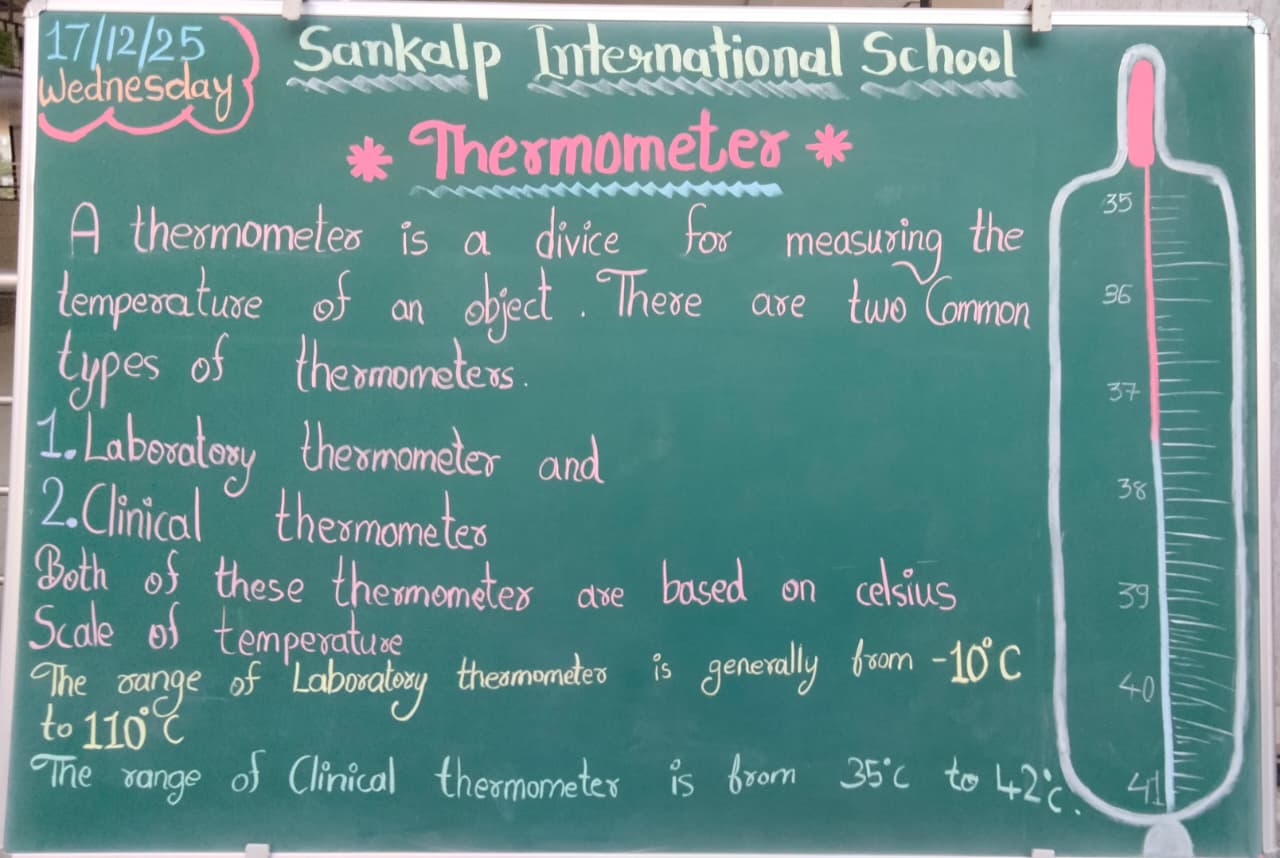 17/12/25
Wednesday
Sankalp International School
* Thermometer *
A thermometer is a divice for measuring the
temperature of an object. There are two Common
types of thermometers.
1. Laboratory thermometer and
2. Clinical thermometer
Both of these thermometer are based on celsius
Scale of temperature
The range of Laboratory thermometer is generally from -10°C
to 110°C
The range of Clinical thermometer is from 35°c to 42°c.
35
36
37
38
39
40
41